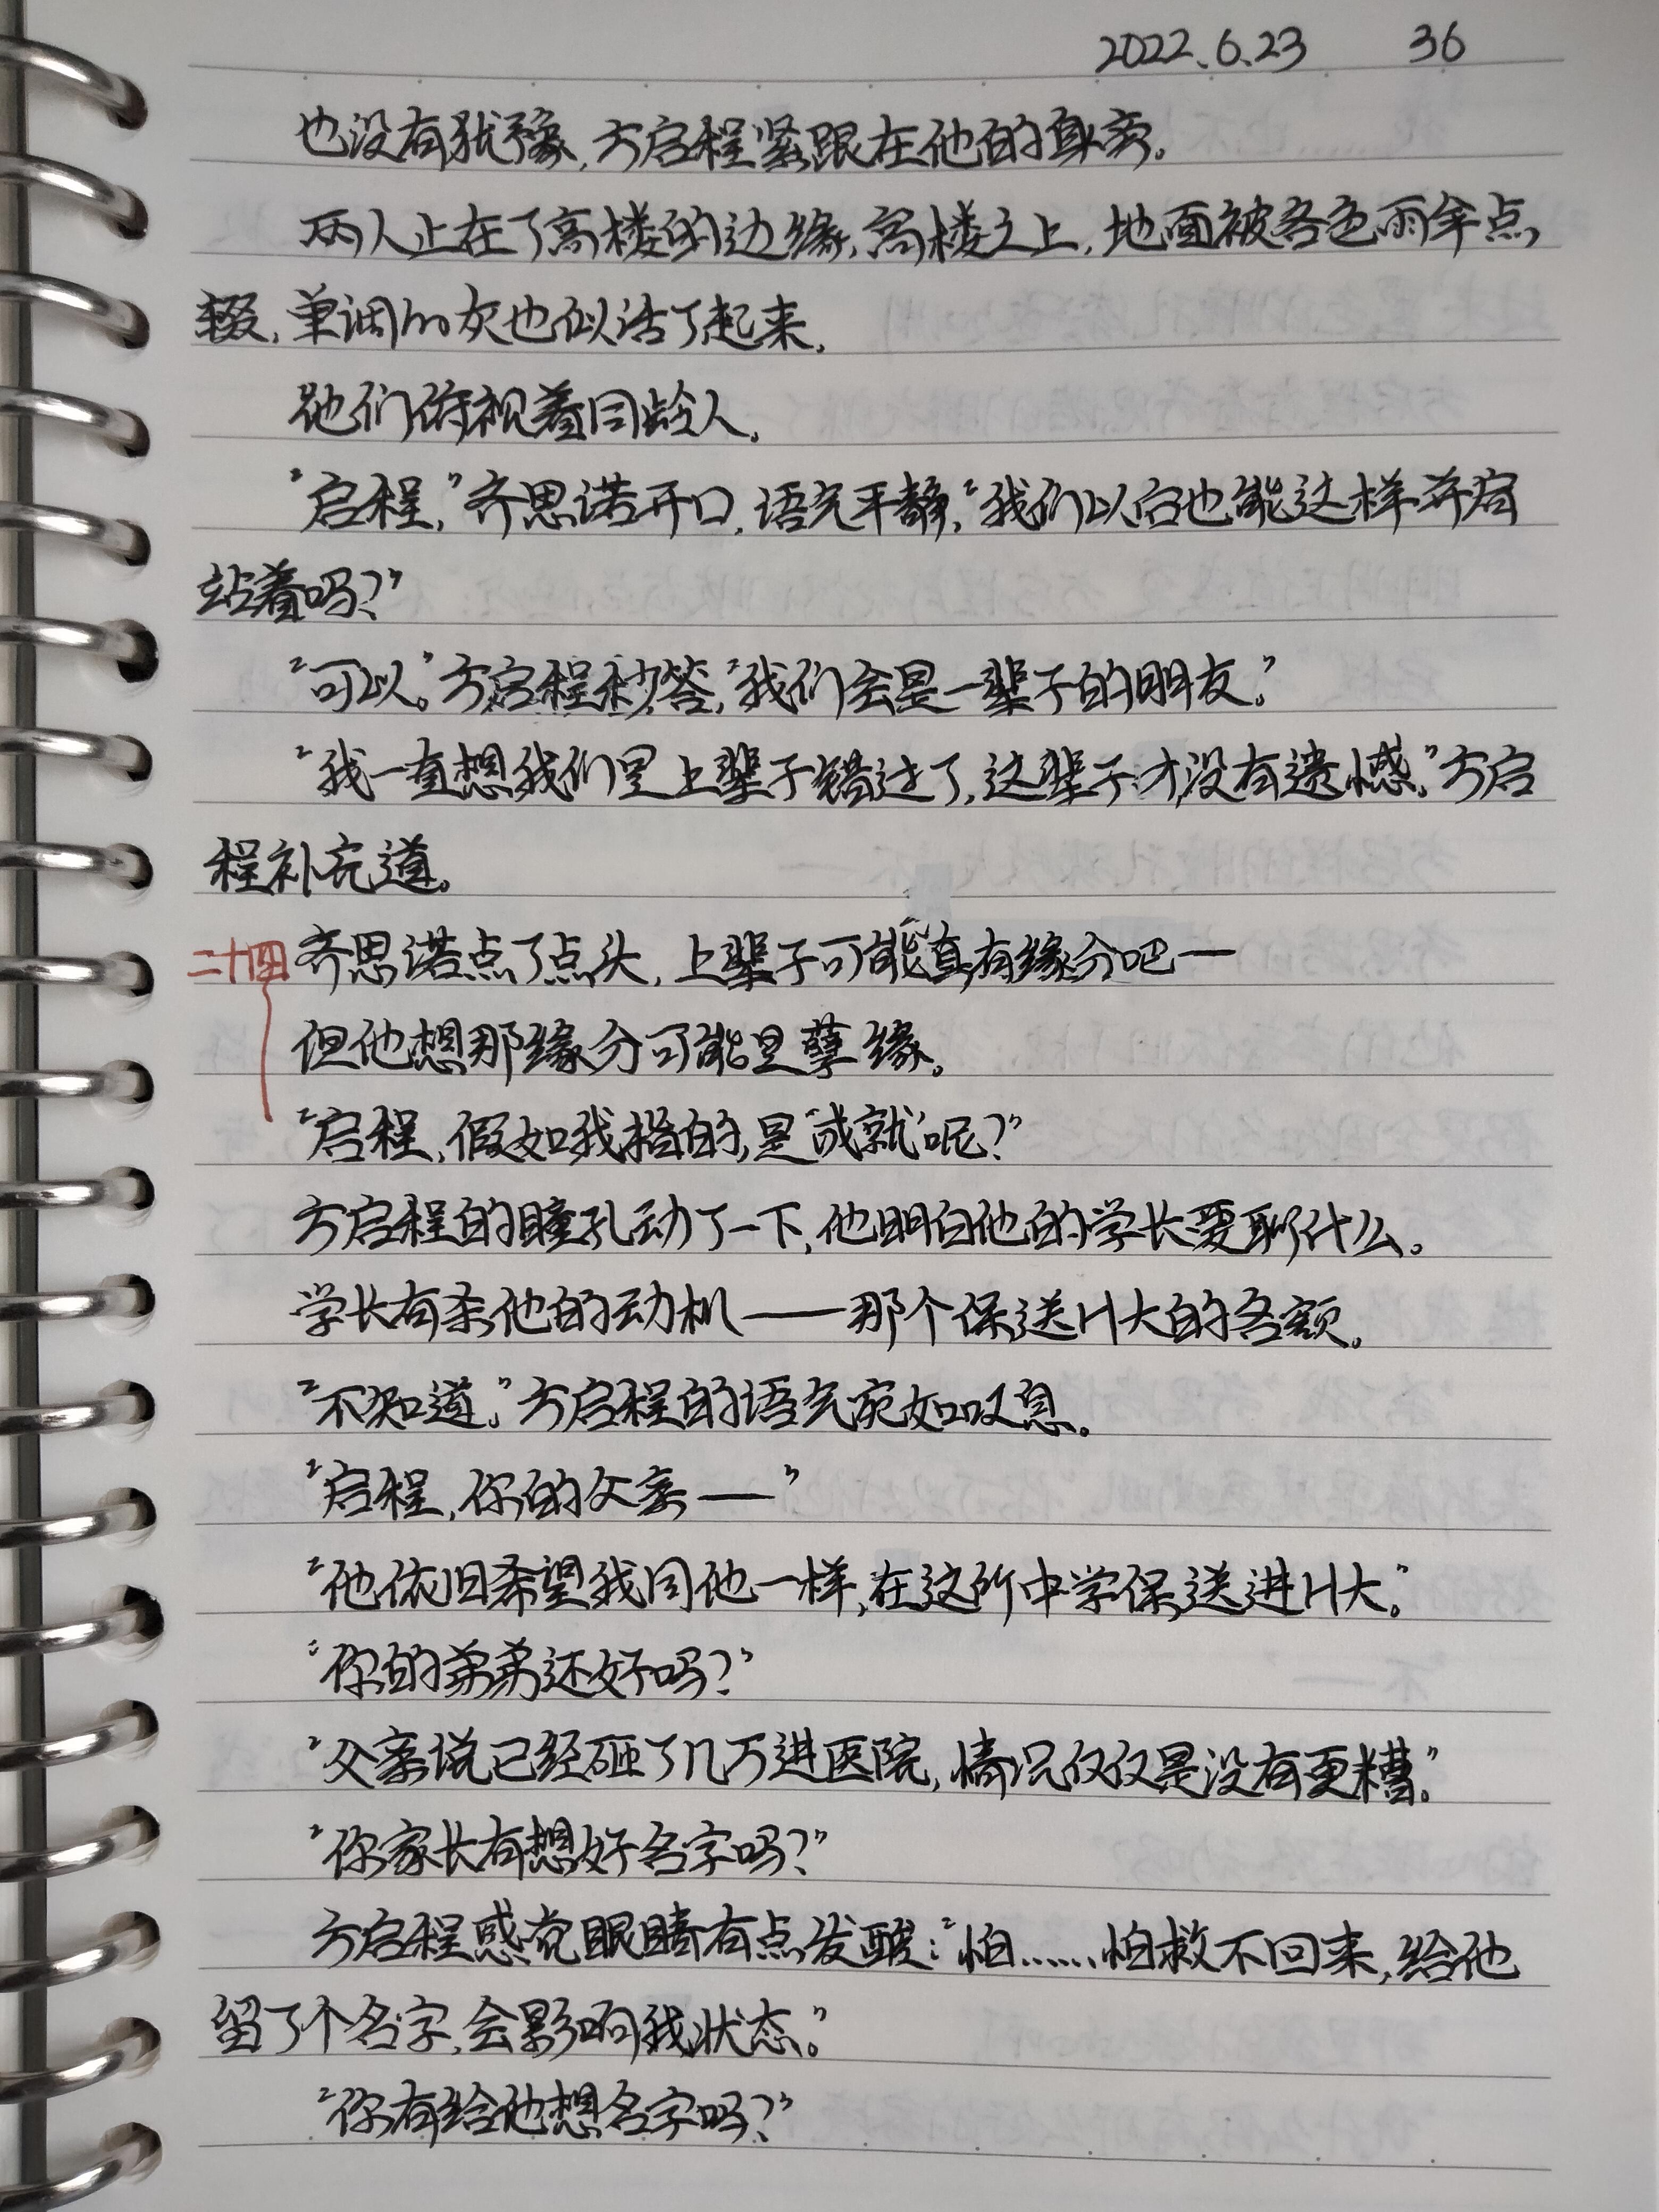 2022.6.23 36
也没有犹豫,方启程紧跟在他的身旁。
两人止在了高楼的边缘,高楼之上,地面被各色雨伞点
缀,单调的灰也似活了起来。
他们俯视着同龄人。
“启程,”齐思诺开口,语气平静,“我们以后也能这样并肩
站着吗?”
“可以。”方启程秒答,“我们会是一辈子的朋友。”
“我一直想我们是上辈子错过了,这辈子才没有遗憾。”方启
程补充道。
二十四 齐思诺点了点头,上辈子可能真有缘分吧—
但他想那缘分可能是孽缘。
“启程,假如我指的,是‘成就’呢?”
方启程的瞳孔动了一下,他明白他的学长要聊什么。
学长有杀他的动机——那个保送H大的名额。
“不知道。”方启程的语气宛如叹息。
“启程,你的父亲——”
“他依旧希望我同他一样,在这所中学保送进H大。”
“你的弟弟还好吗?”
“父亲说已经砸了几万进医院,情况仅仅是没有更糟。”
“你家长有想好名字吗?”
方启程感觉眼睛有点发酸:“怕……怕救不回来,给他
留了个名字,会影响我状态。”
“你有给他想名字吗?”